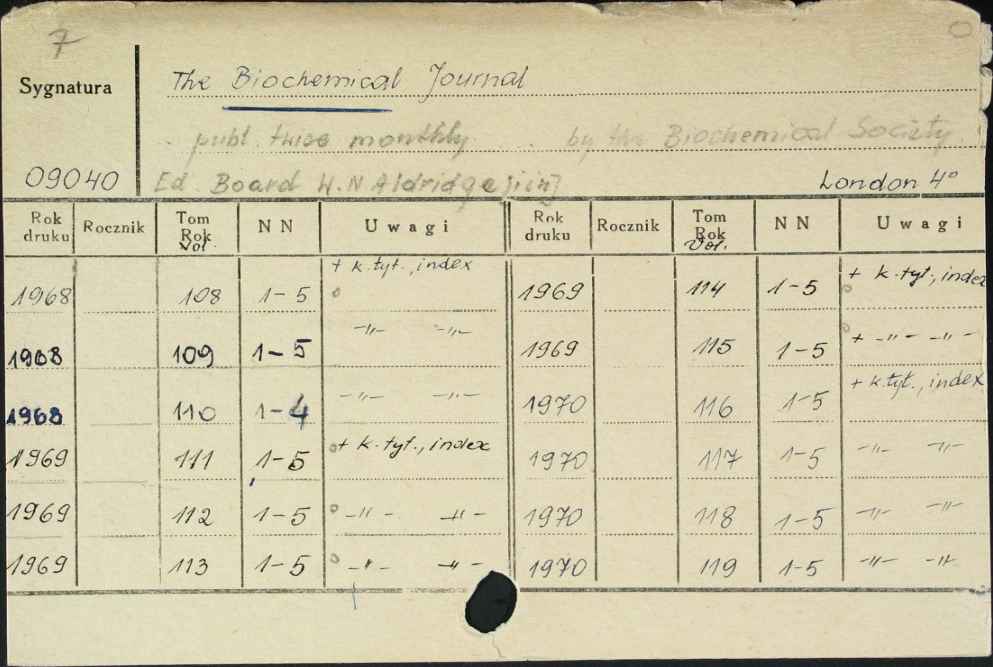 7
Sygnatura
The Biochemical Journal
publ. twice monthly by the Biochemical Society
09040 Ed. Board W.N Aldridge London 4°
Rok druku Rocznik Tom Rok Vol. NN Uwagi Rok druku Rocznik Tom Rok Vol. NN Uwagi
1968 108 1-5 + k.tyt., index 1969 114 1-5 + k.tyt., index
1968 109 1-5 -"- -"- 1969 115 1-5 + -"- -"-
1968 110 1-4 -"- -"- 1970 116 1-5 + k.tyt., index
1969 111 1-5 + k.tyt., index 1970 117 1-5 -"- -"-
1969 112 1-5 -"- -"- 1970 118 1-5 -"- -"-
1969 113 1-5 -"- -"- 1970 119 1-5 -"- -"-